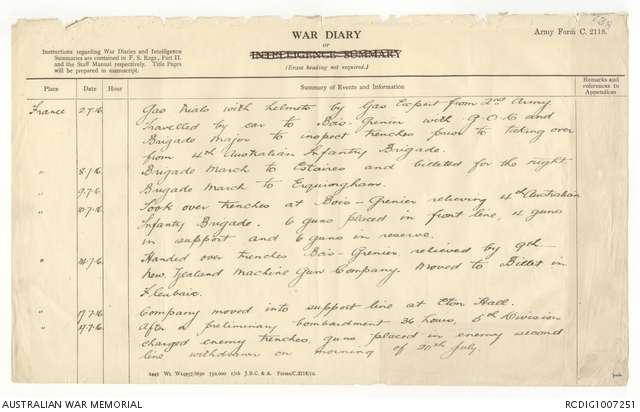 WAR DIARY
or
INTELLIGENCE SUMMARY
(Erase heading not required.)
Army Form C. 2118.
Instructions regarding War Diaries and Intelligence
Summaries are contained in F. S. Regs., Part II.
and the Staff Manual respectively. Title Pages
will be prepared in manuscript.
Place Date Hour Summary of Events and Information Remarks and references to Appendices
France 2.7.16. Gas trials with helmets by Gas Expert from 2nd Army.
Travelled by car to Bois-Grenier with G.O.C and
Brigade Major to inspect trenches prior to taking over
from 4th Australian Infantry Brigade.
" 8.7.16 Brigade March to Estaires and billetted for the night
" 9.7.16 Brigade March to Erquinghem.
" 10.7.16 Took over trenches at Bois-Grenier relieving 4th Australian
Infantry Brigade. 6 guns placed in front line, 4 guns
in support and 6 guns in reserve.
" 14.7.16 Handed over trenches Bois-Grenier relieved by 9th
New Zealand Machine Gun Company. Moved to Billet in
Fleurbaix.
" 17.7.16 Company moved into support line at Eton Hall.
" After a preliminary bombardment 36 hours, 5th Division
charged enemy trenches, guns placed in enemy second
line withdrawn on morning of 20th July
2449 Wt. W14957/M90 750,000 1/16 J.B.C. & A. Forms/C.2118/12.
AUSTRALIAN WAR MEMORIAL
RCDIG1007251